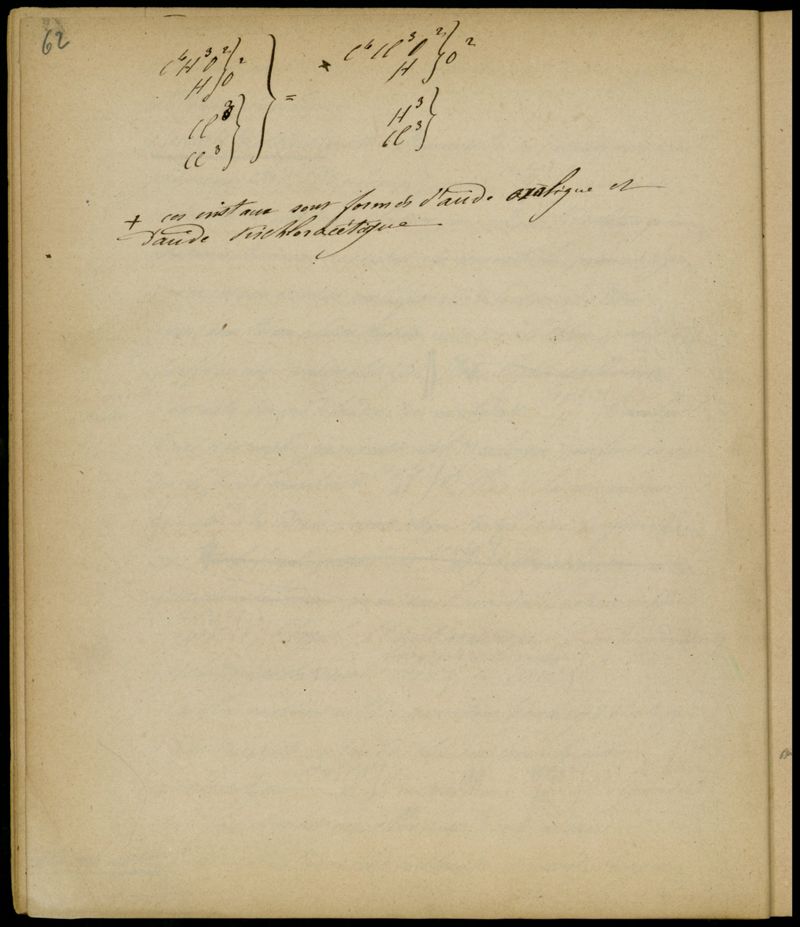 62
C⁶H³O² } O²
H
Cl³
Cl³
=
× C⁶Cl³O² } O²
H
H³
Cl³
+ ces cristaux sont formés d'acide oxalique et
d'acide trichloracétique